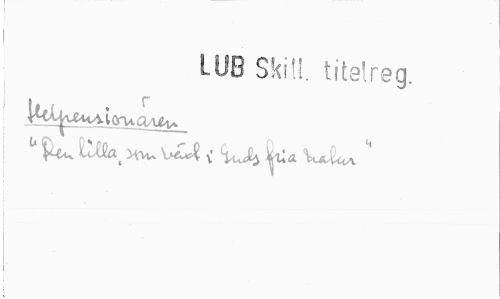 LUB Skill. titelreg.
Helpensionären
"Den lilla, som växt i Guds fria natur"